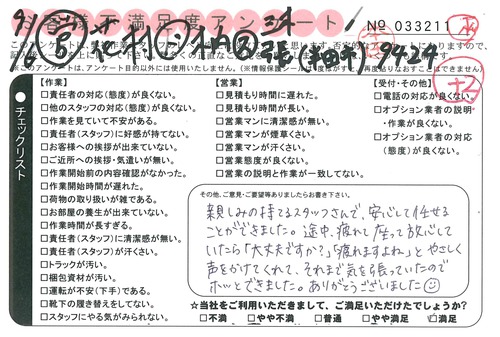 お客様ご満足度アンケート
No 033211
9424
※このアンケートは、アンケート目的以外には使用しません。
チェックリスト
【作業】
□責任者の対応(態度)が良くない。
□他のスタッフの対応(態度)が良くない。
□作業を見ていて不安がある。
□責任者(スタッフ)に好感が持てない。
□お客様への挨拶が出来ていない。
□ご近所への挨拶・気遣いが無い。
□作業開始前の内容確認がなかった。
□作業開始時間が遅れた。
□荷物の取り扱いが雑である。
□お部屋の養生が出来ていない。
□作業時間が長すぎる。
□責任者(スタッフ)に清潔感が無い。
□責任者(スタッフ)が汗くさい。
□トラックが汚い。
□梱包資材が汚い。
□運転が不安(下手)である。
□靴下の履き替えをしてない。
□スタッフにやる気がみられない。
【営業】
□見積もり時間に遅れた。
□見積もり時間が長い。
□営業マンに清潔感が無い。
□営業マンが煙草くさい。
□営業マンが汗くさい。
□営業態度が良くない。
□営業の説明と作業が一致してない。
【受付・その他】
□電話の対応が良くない。
□オプション業者の説明・作業が良くない。
□オプション業者の対応(態度)が良くない。
その他、ご意見・ご要望等ありましたらお書き下さい。
親しみの持てるスタッフさんで、安心して任せる
ことができました。途中、疲れて座って放心して
いたら「大丈夫ですか?」「疲れますよね」とやさしく
声をかけてくれて、それまで気を張っていたので
ホッとできました。ありがとうございました
☆当社をご利用いただきまして、ご満足いただけたでしょうか?
□不満 □やや不満 □普通 □やや満足 ☑満足